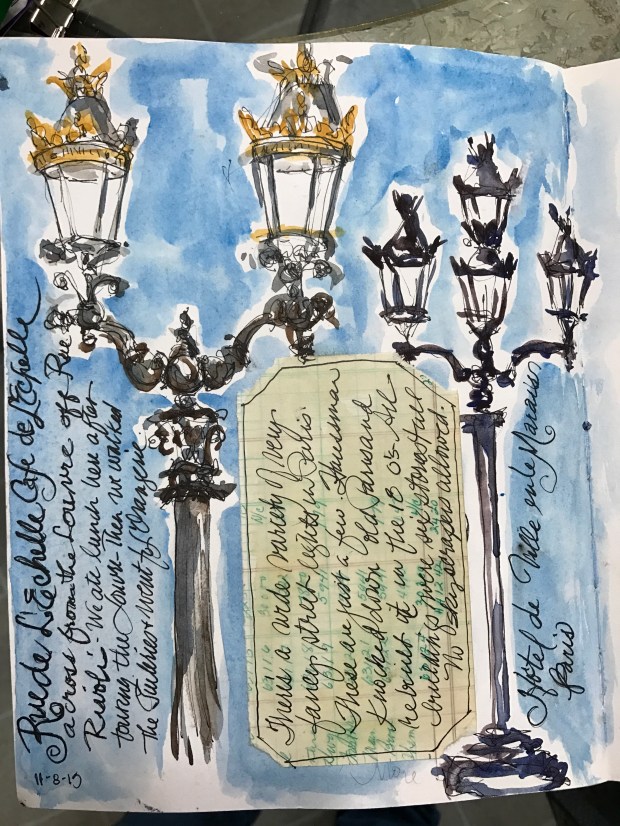 Rue de L'Echelle Cafe de L'Echelle
across from the Louvre off Rue
Rivoli. We ate lunch here after
touring the Louvre - Then we walked
the Tuileries & went to l'Orangerie
11-8-15
There's a wide variety of very
fancy street lights in Paris.
These are just a few. Hausman
Knocked down old Paris and
rebuilt it in the 1800s. All
buildings were six stories tall
No skyscrapers allowed.
Hotel de Ville en le Marais
Paris